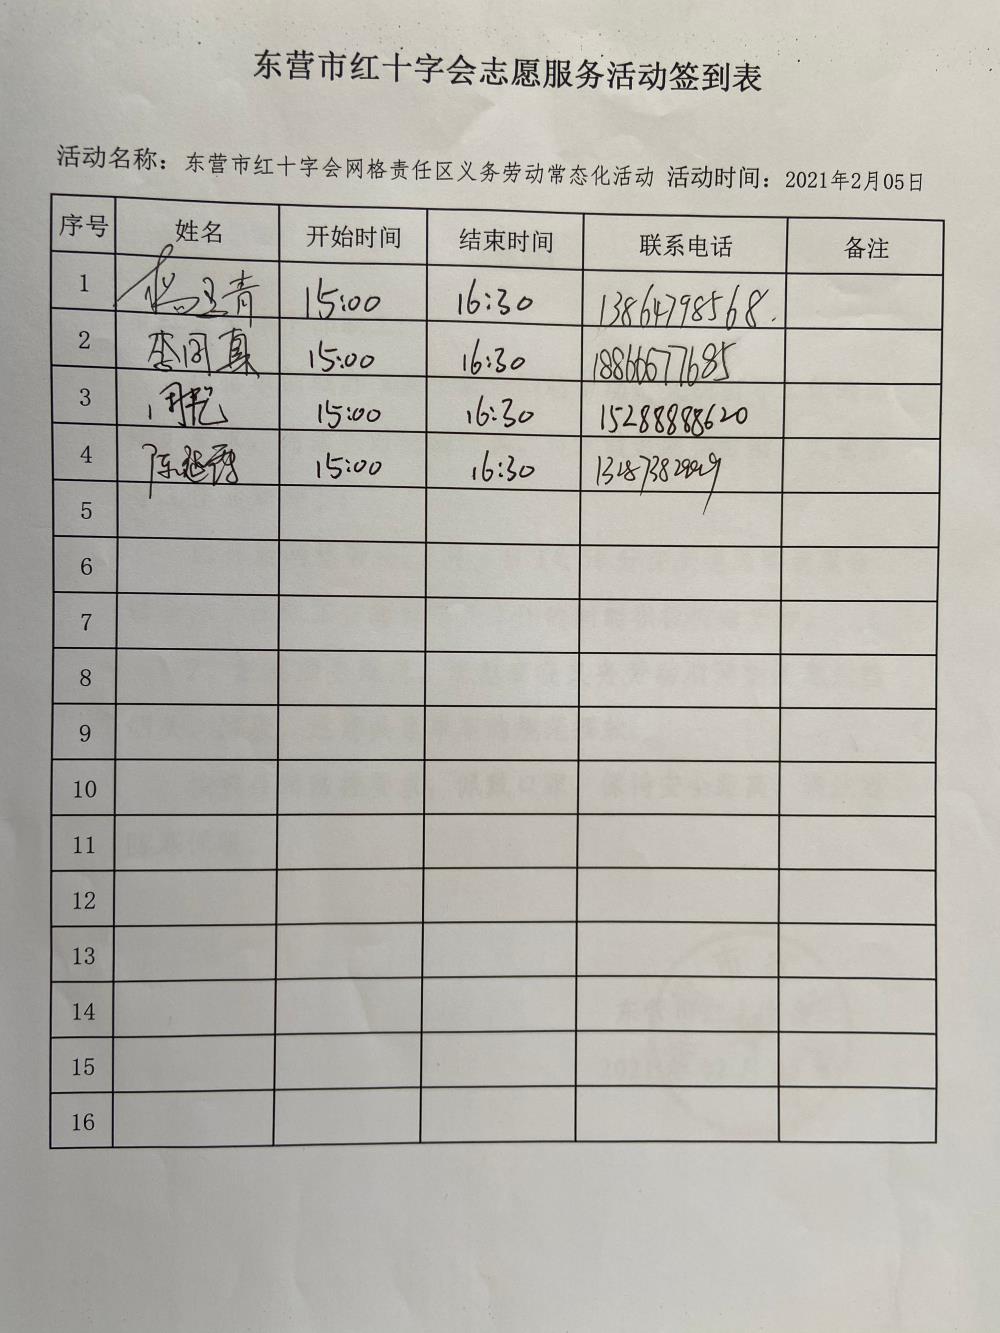 东营市红十字会志愿服务活动签到表
活动名称：东营市红十字会网格责任区义务劳动常态化活动 活动时间：2021年2月05日
序号 姓名 开始时间 结束时间 联系电话 备注
1 杨玉青 15:00 16:30 13864798568.
2 李同真 15:00 16:30 18866677685
3 周艳 15:00 16:30 15288888620
4 陈延 15:00 16:30
5
6
7
8
9
10
11
12
13
14
15
16